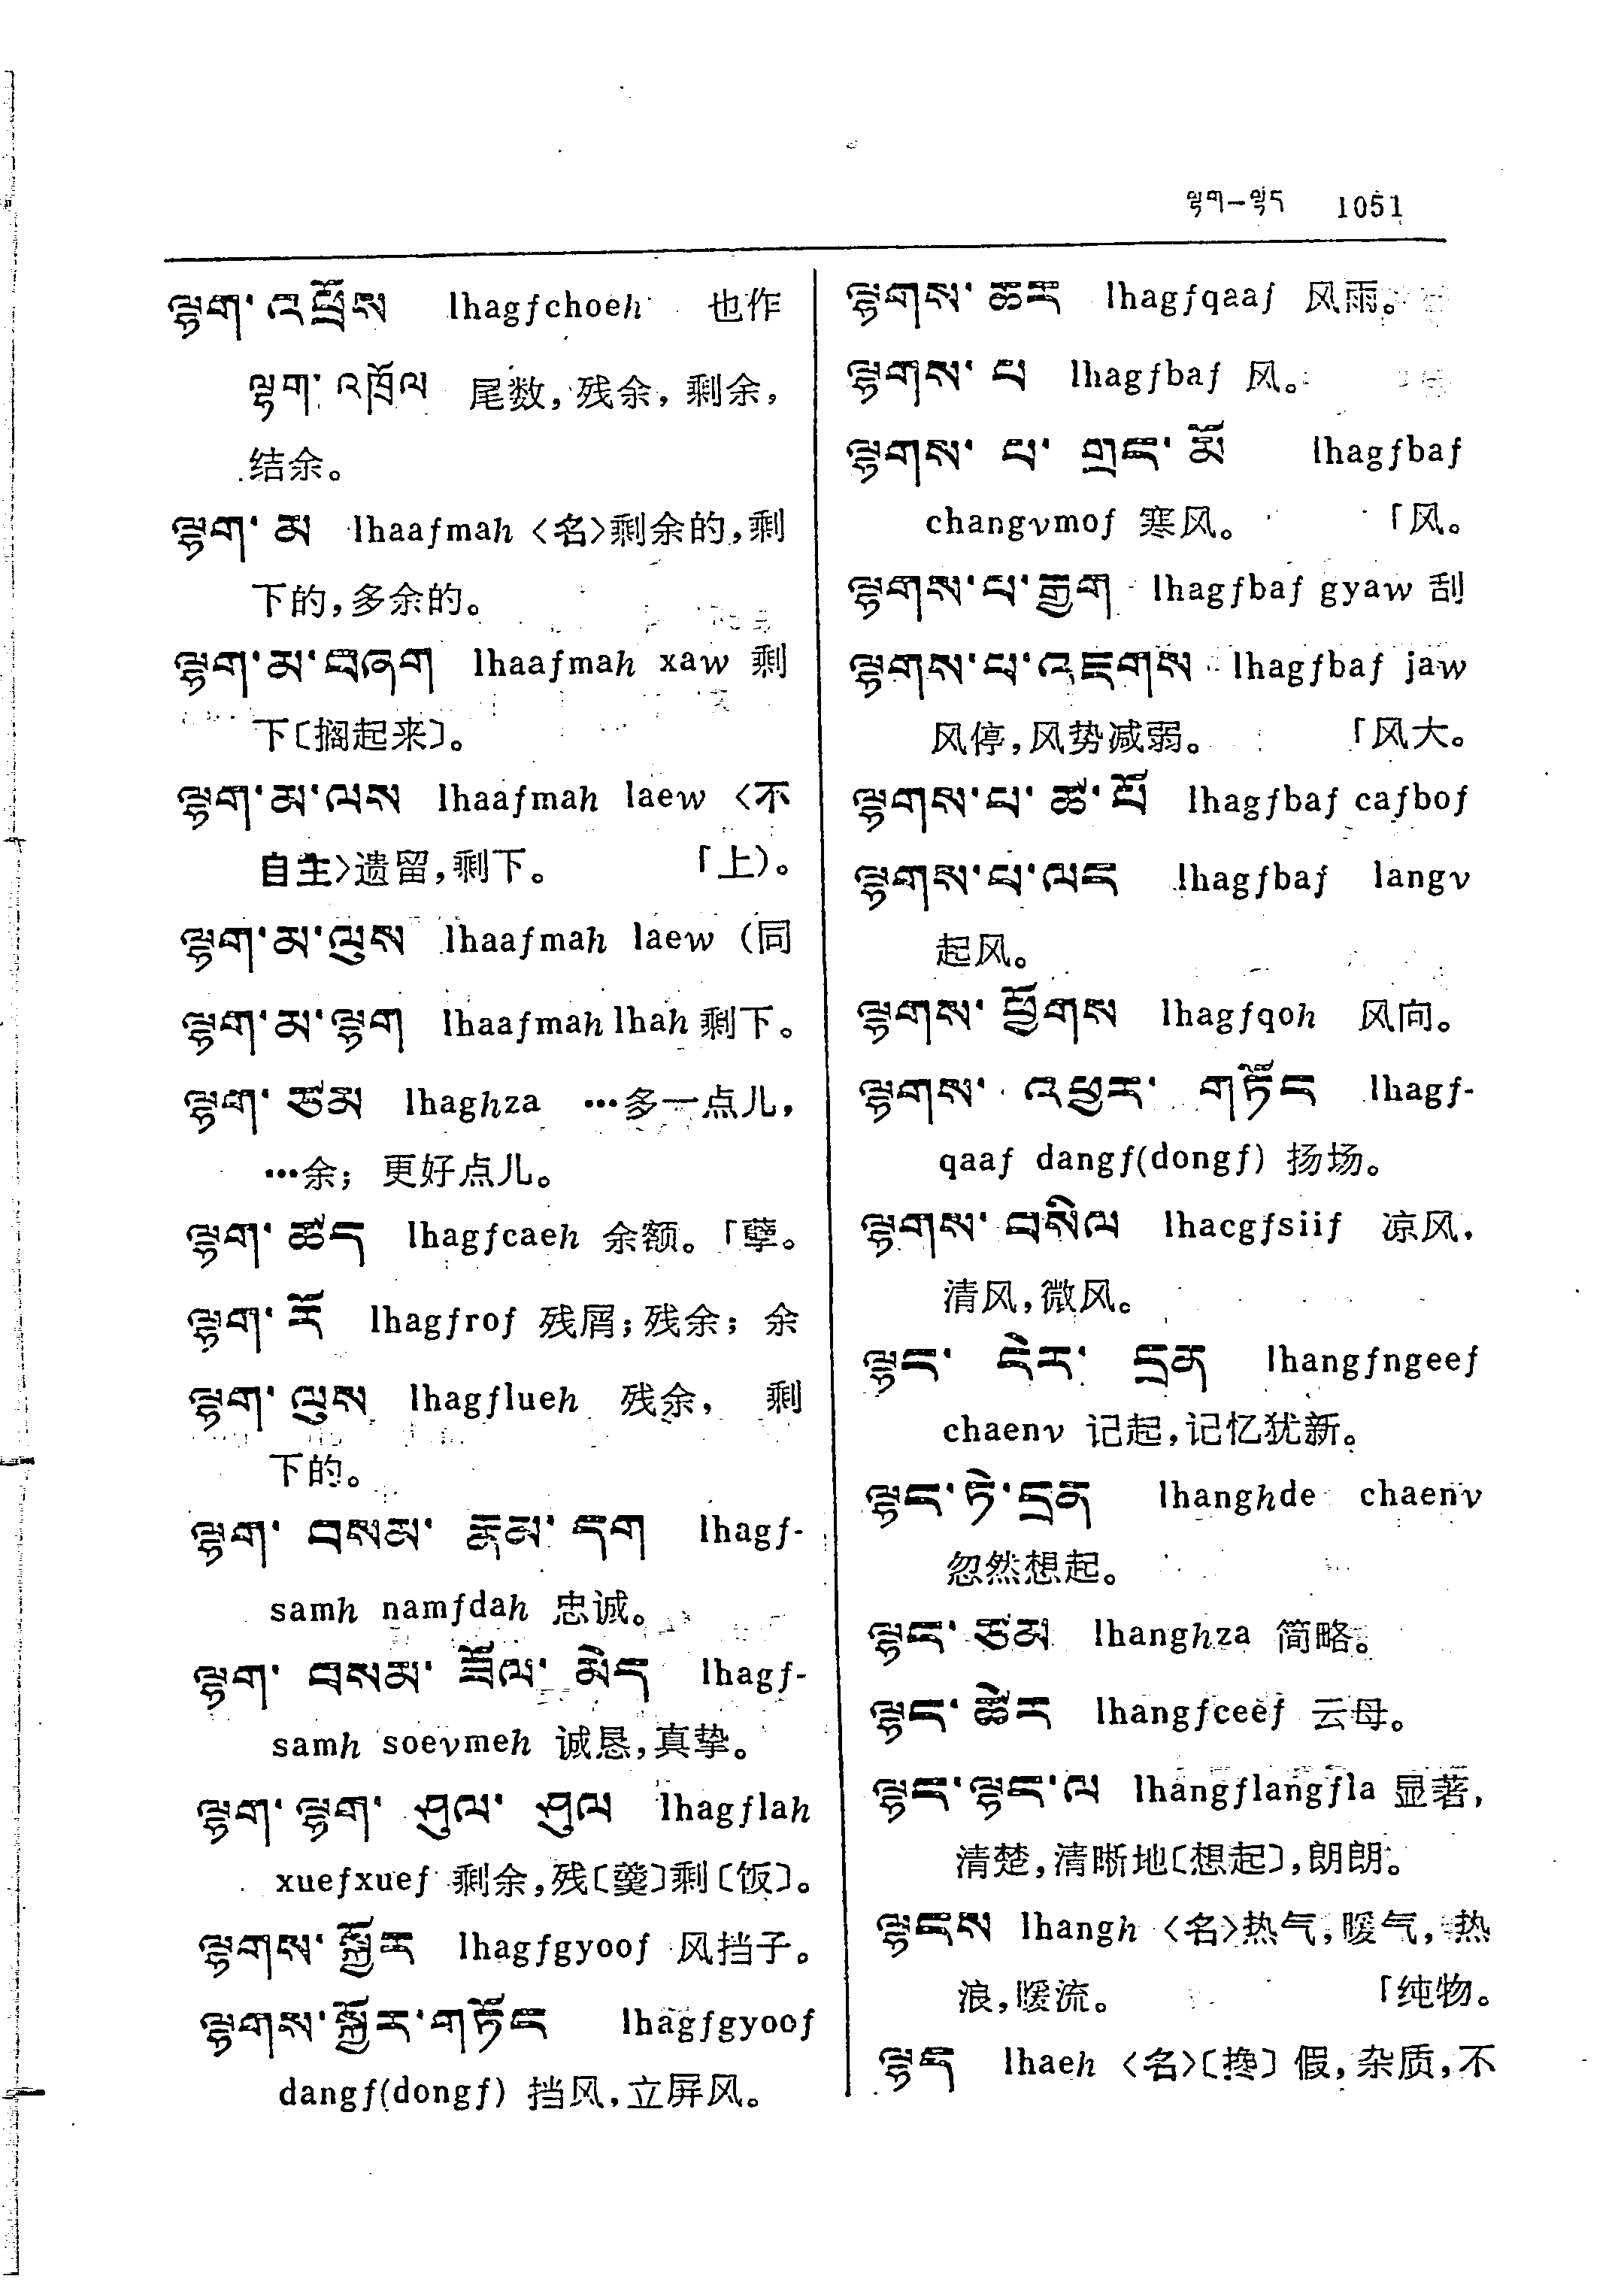 ལྷག—ལྷད 1051
ལྷག་འཕྲོས lhagfchoeh 也作
ལྷག་འཁྲོལ 尾数,残余,剩余,
结余。
ལྷག་མ lhaafmah〈名〉剩余的,剩
下的,多余的。
ལྷག་མ་བཞག lhaafmah xaw 剩
下〔搁起来〕。
ལྷག་མ་ལས lhaafmah laew〈不
自主〉遗留,剩下。 「上)。
ལྷག་མ་ལུས lhaafmah laew (同
ལྷག་མ་ལྷག lhaafmah lhah 剩下。
ལྷག་ཙམ lhaghza …多一点儿,
…余; 更好点儿。
ལྷག་ཚད lhagfcaeh 余额。「孽。
ལྷག་རོ lhagfrof 残屑;残余; 余
ལྷག་ལུས lhagflueh 残余, 剩
下的。
ལྷག་བསམ་རྣམ་དག lhagf-
samh namfdah 忠诚。
ལྷག་བསམ་ཟོལ་མེད lhagf-
samh soevmeh 诚恳,真挚。
ལྷག་ལྷག་ཤུལ་ཤུལ lhagflah
xuefxuef 剩余,残〔羹〕剩〔饭〕。
ལྷགས་སྐྱོར lhagfgyoof 风挡子。
ལྷགས་སྐྱོར་གཏོང lhagfgyoof
dangf(dongf) 挡风,立屏风。
ལྷགས་ཆར lhagfqaaf 风雨。
ལྷགས་པ lhagfbaf 风。
ལྷགས་པ་གྲང་མོ lhagfbaf
changvmof 寒风。 「风。
ལྷགས་པ་རྒྱག lhagfbaf gyaw 刮
ལྷགས་པ་འཇགས lhagfbaf jaw
风停,风势减弱。 「风大。
ལྷགས་པ་ཚ་པོ lhagfbaf cafbof
ལྷགས་པ་ལང lhagfbaf langv
起风。
ལྷགས་ཕྱོགས lhagfqoh 风向。
ལྷགས་འཕྱར་གཏོང lhagf-
qaaf dangf(dongf) 扬场。
ལྷགས་བསིལ lhacgfsiif 凉风,
清风,微风。
ལྷང་ངེར་དྲན lhangfngeef
chaenv 记起,记忆犹新。
ལྷང་ཏེ་དྲན lhanghde chaenv
忽然想起。
ལྷང་ཙམ lhanghza 简略。
ལྷང་ཚེར lhangfceef 云母。
ལྷང་ལྷང་ལ lhangflangfla 显著,
清楚,清晰地〔想起〕,朗朗。
ལྷངས lhangh〈名〉热气,暖气,热
浪,暖流。 「纯物。
ལྷད lhaeh〈名〉〔搀〕假,杂质,不